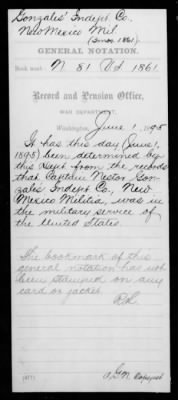 Gonzales' Indept. Co.,
New Mexico Mil.
(3 mos. 1861.)
GENERAL NOTATION.
Book mark: N 81 (VS) 1861.
Record and Pension Office,
WAR DEPARTMENT,
Washington, June 1, 1895
It has this day (June 1,
1895) been determined by
this Dept. from the records
that Captain Nestor Gon-
zales' Indept. Co., New
Mexico Militia, was in
the military service of
the United States.
The bookmark of this
general notation has not
been stamped on any
card or jacket.
(477)
Copyist.